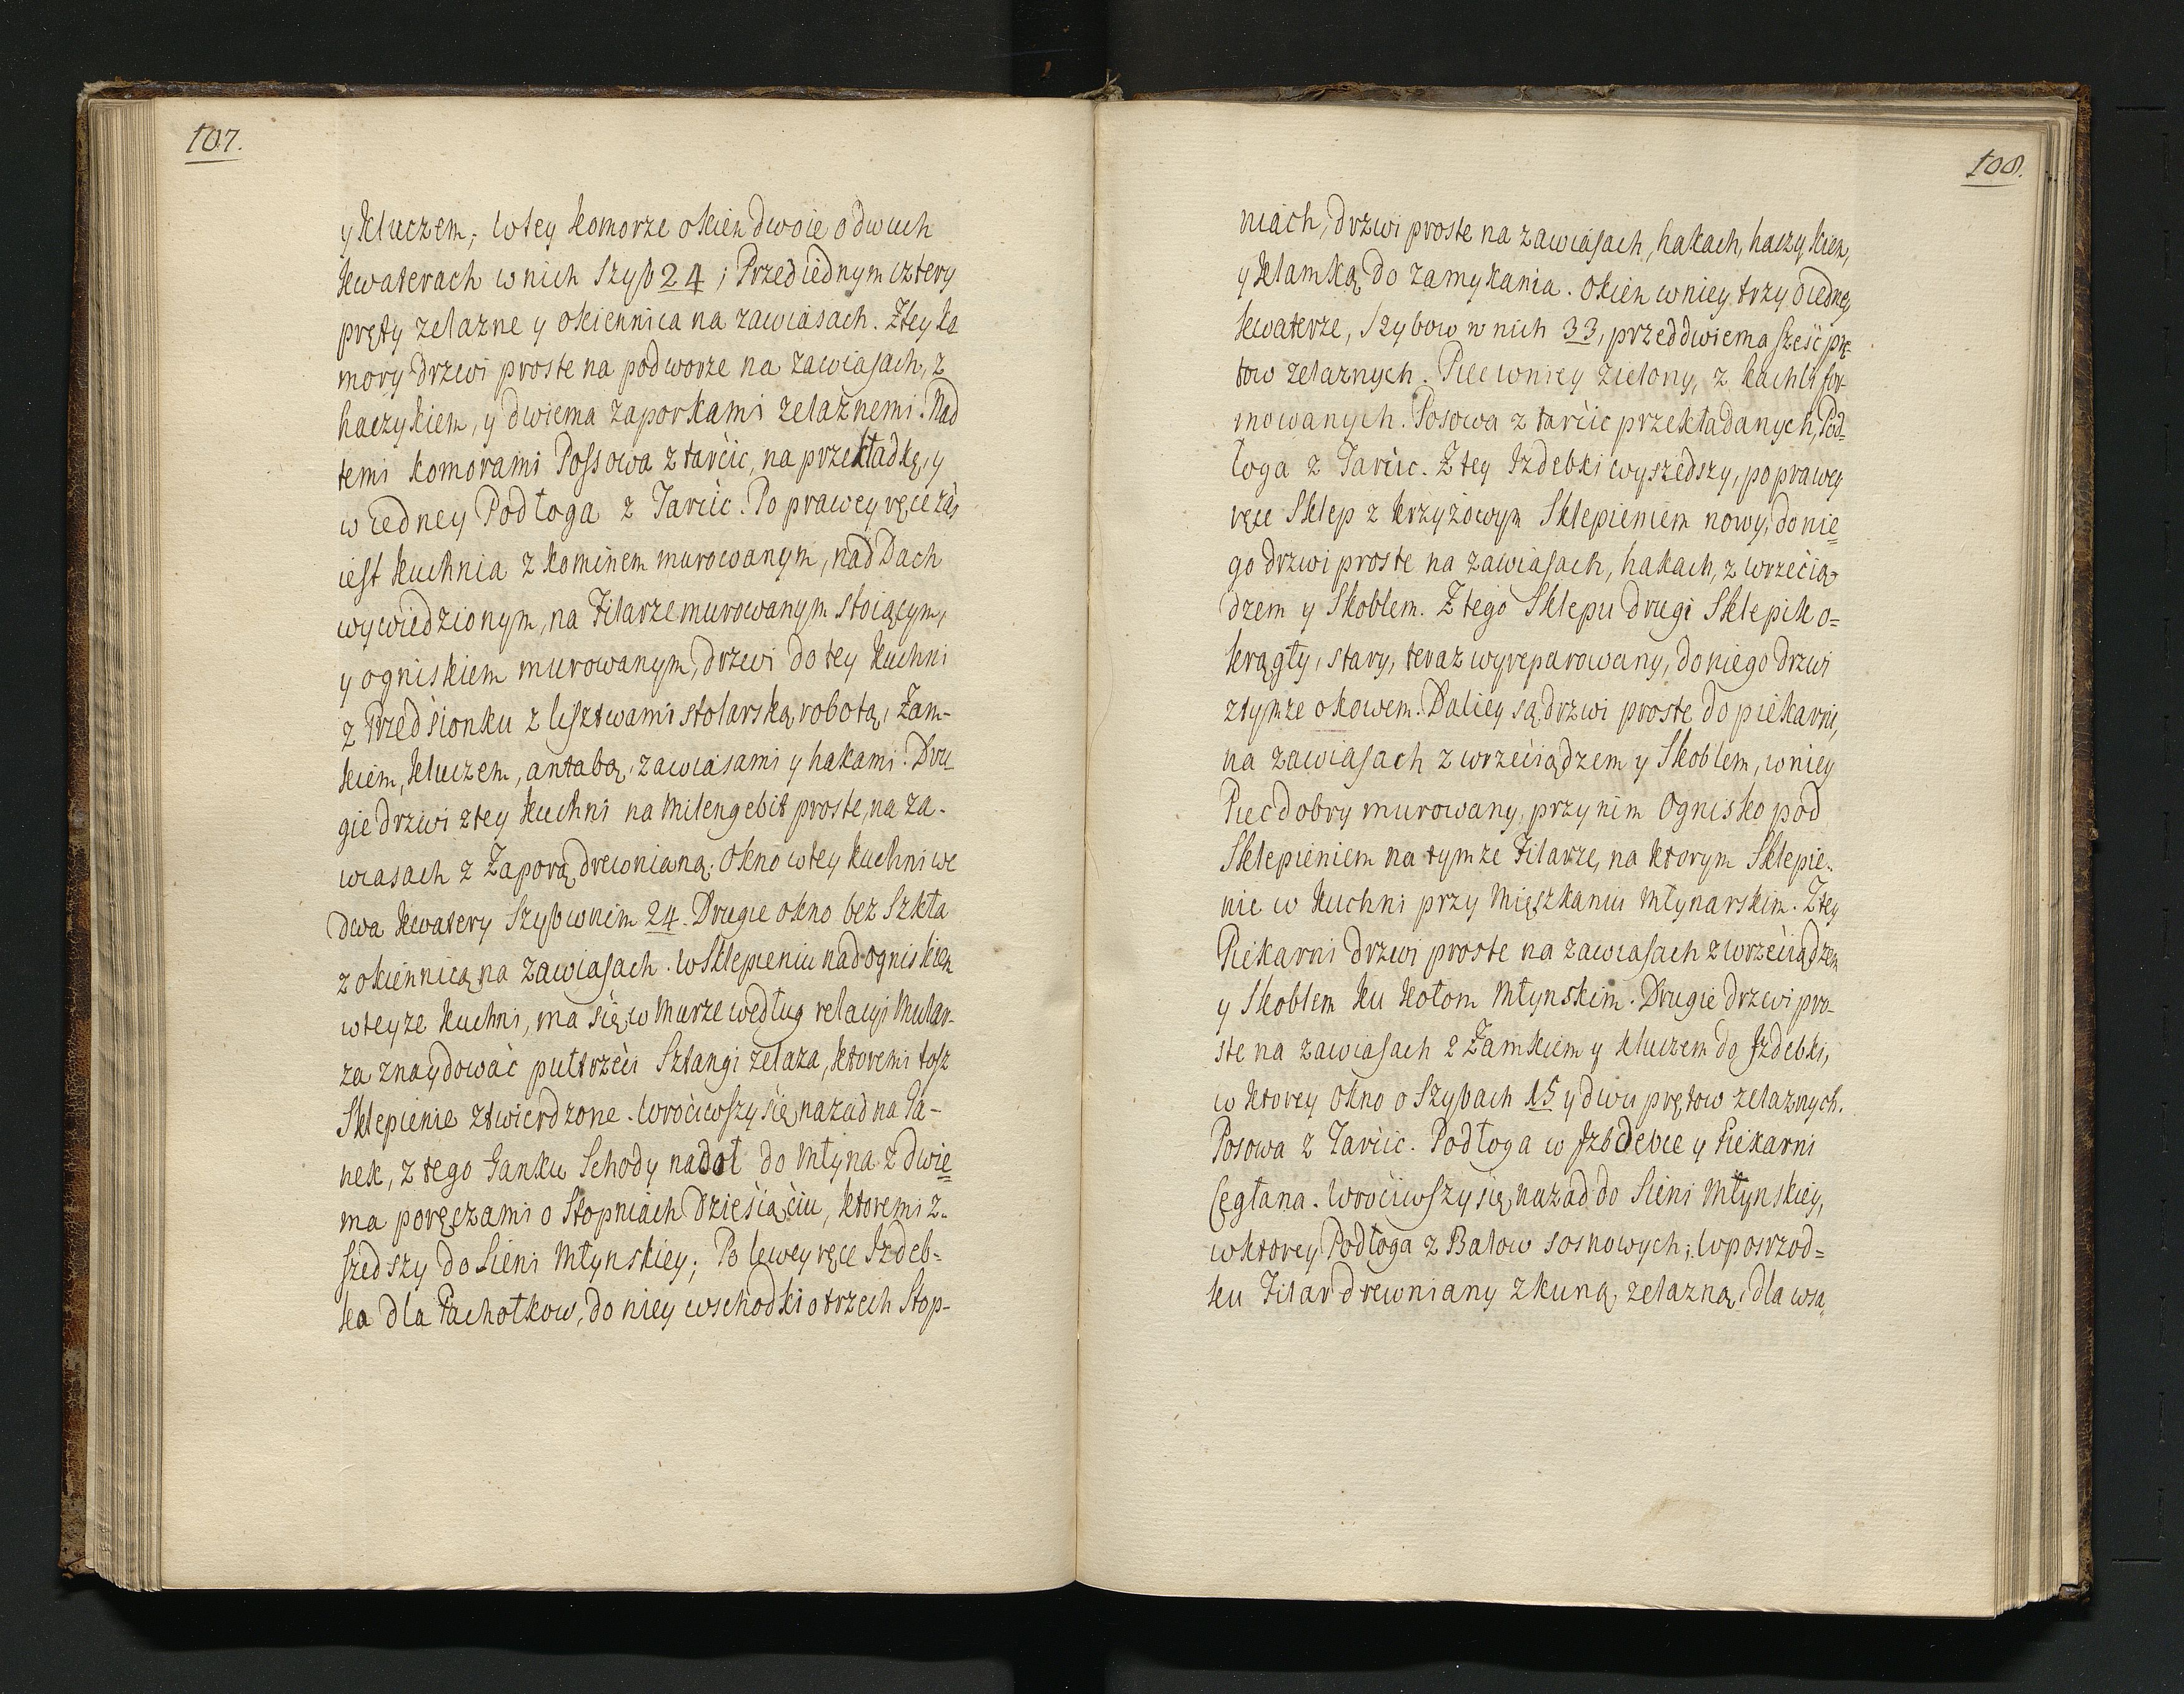 107.
y kluczem; w tey komorze okien dwoie o dwuch
kwaterach w nich Szyb 24; Przed iednym cztery
pręty zelazne y okiennica na zawiasach. Z tey ko
mory drzwi proste na podworze na zawiasach, z
haczykiem, y dwiema zaporkami zelaznemi. Nad
temi komorami Possowa z tarcic, na przekładkę, y
w iedney Podłoga z Tarcic. Po prawey ręce zaś
iest kuchnia z kominem murowanym, nad Dach
wywiedzionym, na Filarze murowanym stoiącym,
y ogniskiem murowanym, drzwi do tey kuchni
z Przedsionku z lisztwami stolarską robotą, Zam-
kiem, kluczem, antabą, zawiasami y hakami. Dru-
gie drzwi z tey kuchni na Milengebit proste, na za-
wiasach z Zaporą drewnianą. Okno w tey kuchni we
dwa kwatery Szyb w nim 24. Drugie okno bez Szkła
z okiennicą na zawiasach. w Sklepieniu nad ogniskiem
w teyze kuchni, ma się w Murze według relacyi Mular-
za znaydować pułtrzeci Sztangi zelaza, ktoremi tosz
Sklepienie ztwierdzone. Wrociwszy się nazad na Ga-
nek, z tego Ganku Schody na doł do Młyna z dwie=
ma poręczami o Stopniach Dziesiąciu, ktoremi z=
szedszy do Sieni Młynskiey; Po lewey ręce Izdeb=
ka dla Pachołkow, do niey wschodki o trzech Stop-
108.
niach, drzwi proste na zawiasach, hakach, haczykiem,
y klamką do zamykania. Okien w niey trzy o iedney
kwaterze, Szybow w nich 33, przed dwiema sześć prę-
tow zelaznych. Piec w niey zielony, z kachli for-
mowanych. Posowa z tarcic przekładanych, Pod-
łoga z Tarcic. Z tey Izdebki wyszedszy, po prawey
ręce Sklep z krzyżowym Sklepieniem nowy, do nie=
go drzwi proste na zawiasach, hakach, z wrzecią-
dzem y Skoblem. Z tego Sklepu drugi Sklepik o=
krągły, stary, teraz wyreparowany, do niego drzwi
z tymze okowem. Daliey są drzwi proste do piekarni,
na zawiasach z wrzeciądzem y Skoblem, w niey
Piec dobry murowany, przy nim Ognisko pod
Sklepieniem na tymze Filarze, na ktorym Sklepie-
nie w kuchni przy Mięszkaniu Młynarskim. Z tey
Piekarni drzwi proste na zawiasach z wrzeciądzem
y Skoblem ku kołom Młynskim. Drugie drzwi pro-
ste na zawiasach z Zamkiem y kluczem do Izdebki,
w ktorey okno o Szybach 15 y dwu prętow zelaznych.
Posowa z Tarcic. Podłoga w Izbdebce y Piekarni
Cęglana. Wrociwszy się nazad do Sieni Młynskiey,
w ktorey Podłoga z Balow sosnowych; w posrzod=
ku Filar drewniany z kuną zelazną, dla wsa=